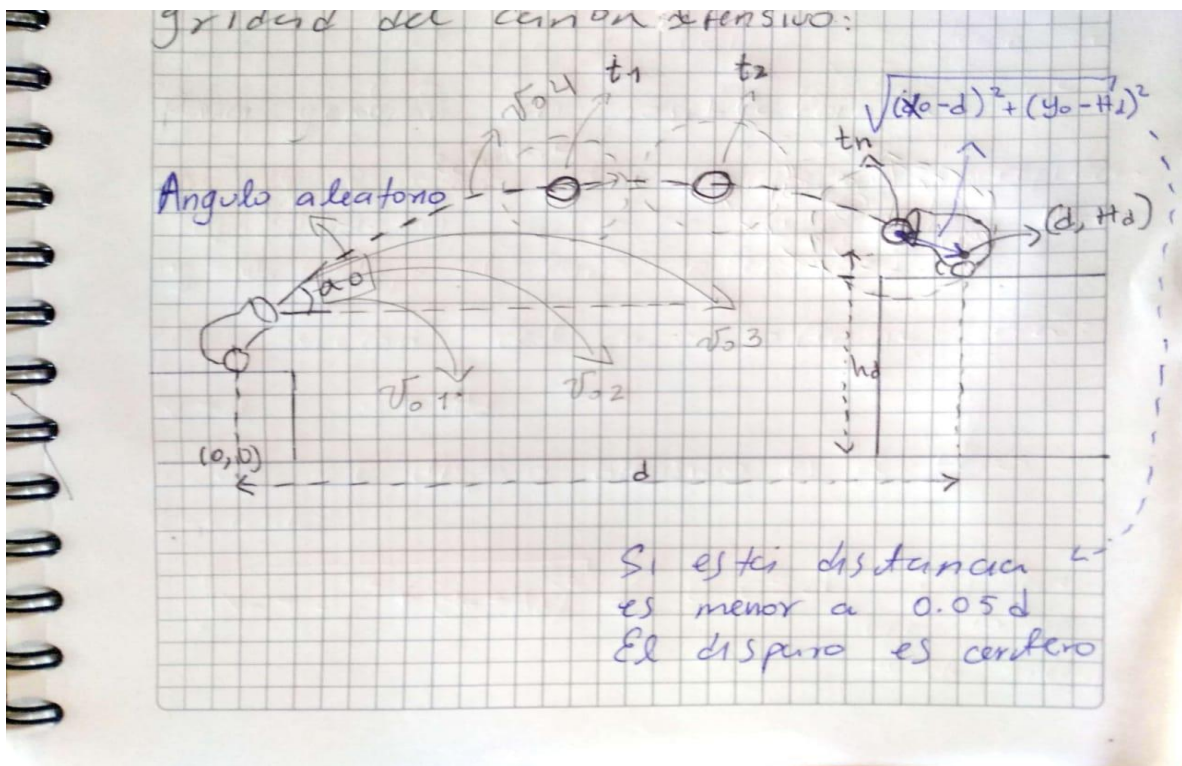 gridad del cañon ofensivo:
t1
t2
Vo4
√(xo-d)²+(yo-Hd)²
tn
Angulo aleatorio
(d, Hd)
ao
Vo3
hd
Vo1
Vo2
(0,0)
d
Si esta distancia
es menor a 0.05d
El disparo es certero